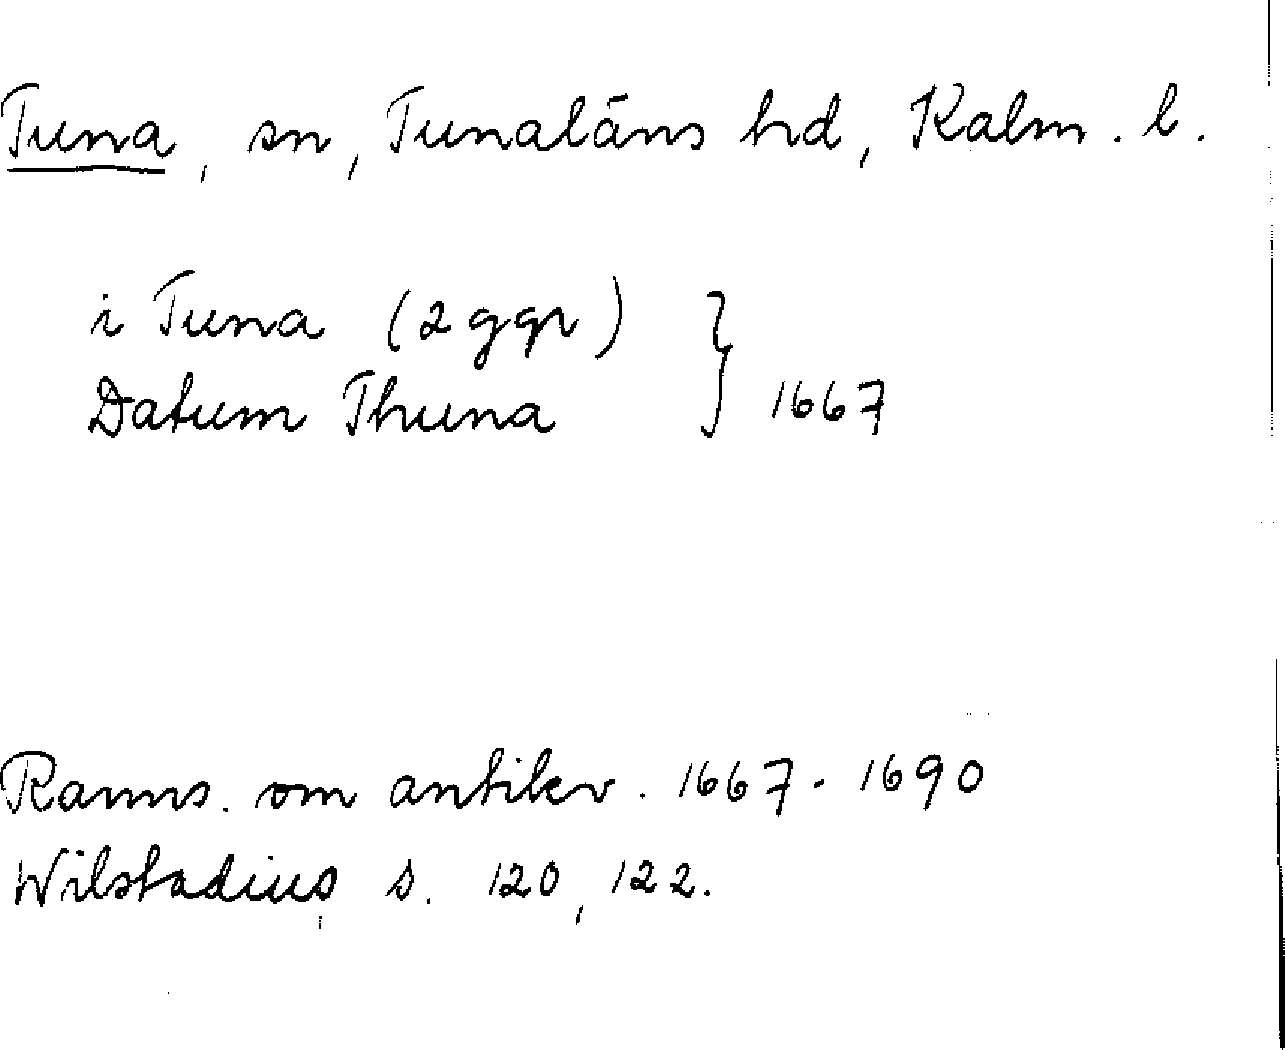 Tuna, sn, Tunaläns hd, Kalm. l.
i Tuna (2 ggr) }
Datum Thuna } 1667
Ranns. om antikv. 1667-1690
Wilstadius s. 120, 122.